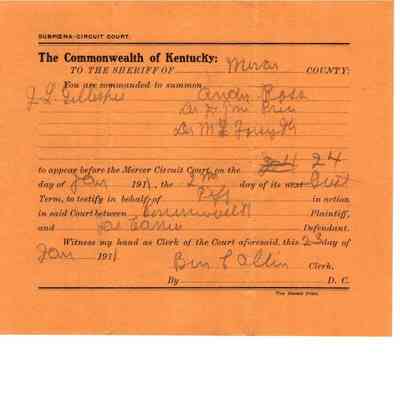 SUBPŒNA-CIRCUIT COURT.
The Commonwealth of Kentucky:
TO THE SHERIFF OF Mercer COUNTY:
You are commanded to summon Andy Ross
J. L. Gillespie
Dr J. M. Price
Dr M L Forsyth
to appear before the Mercer Circuit Court, on the 24
day of Jan 1911, the 2nd day of its next
Term, to testify in behalf of Plff in action
in said Court between Commonwealth Plaintiff,
and Defendant.
Witness my hand as Clerk of the Court aforesaid, this 23 day of
Jan 1911 Ben C Allin Clerk,
By D. C.